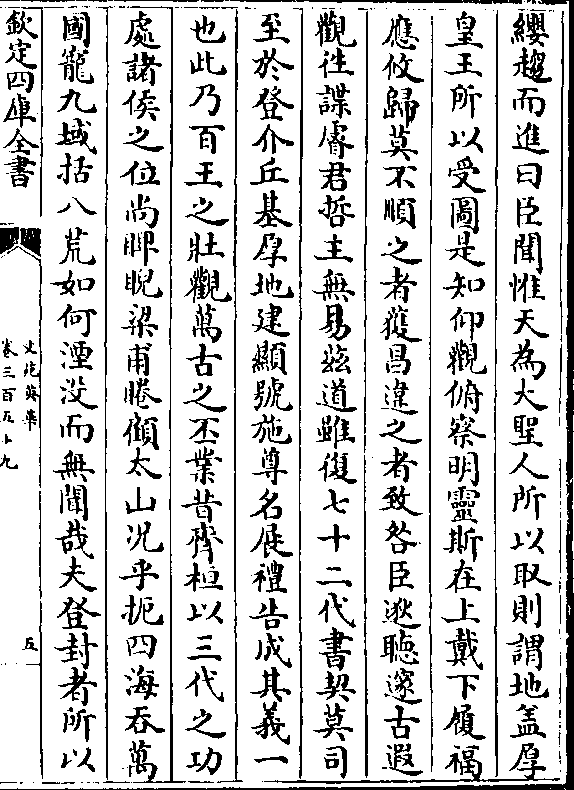 纓趨而進曰臣聞惟天為大聖人所以取則謂地盖厚
皇王所以受圖是知仰觀俯察明靈斯在上戴下履禍
應攸歸莫不順之者獲昌違之者致咎臣逖聽邃古遐
觀徃諜睿君哲主無易兹道雖復七十二代書契莫司
至於登介丘基厚地建顯號施尊名展禮告成其義一
也此乃百王之壯觀萬古之丕業昔齊桓以三代之功
處諸侯之位尚睥睨梁甫睠傾太山況乎扼四海吞萬
國籠九域括八荒如何湮没而無聞哉夫登封者所以
欽定四庫全書
文苑英華
卷三百五十九
五